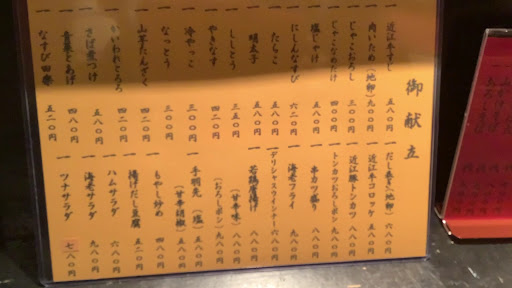 御献立
一 近江牛すし 五八〇円
一 肉いため(地卵) 九〇〇円
一 じゃこおろし 三八〇円
一 じゃこなめたけ 四〇〇円
一 塩じゃけ 五八〇円
一 にしんなすび 六二〇円
一 たらこ 五八〇円
一 明太子 五八〇円
一 ししとう 三五〇円
一 やきなす 四二〇円
一 冷やっこ 三〇〇円
一 なっとう 三〇〇円
一 山芋たんざく 四二〇円
一 かいわれとろろ 四二〇円
一 さば煮つけ 五八〇円
一 四八〇円
一 なすび田楽 五二〇円
一 だし巻き(地卵) 六八〇円
一 近江牛コロッケ 五八〇円
一 近江豚トンカツ 八八〇円
トンカツ(おろしポン) 九八〇円
一 串カツ盛り 八八〇円
一 海老フライ 九八〇円
デリシャスウインナー 六八〇円
一 若鶏唐揚げ 八八〇円
(甘辛味) 八八〇円
(おろしポン) 九八〇円
一 手羽先 (塩) 五八〇円
(甘辛胡椒) 五八〇円
一 もやし炒め 四八〇円
一 揚げだし豆腐 五二〇円
一 ハムサラダ 六八〇円
一 海老サラダ 九八〇円
一 ツナサラダ 七八〇円